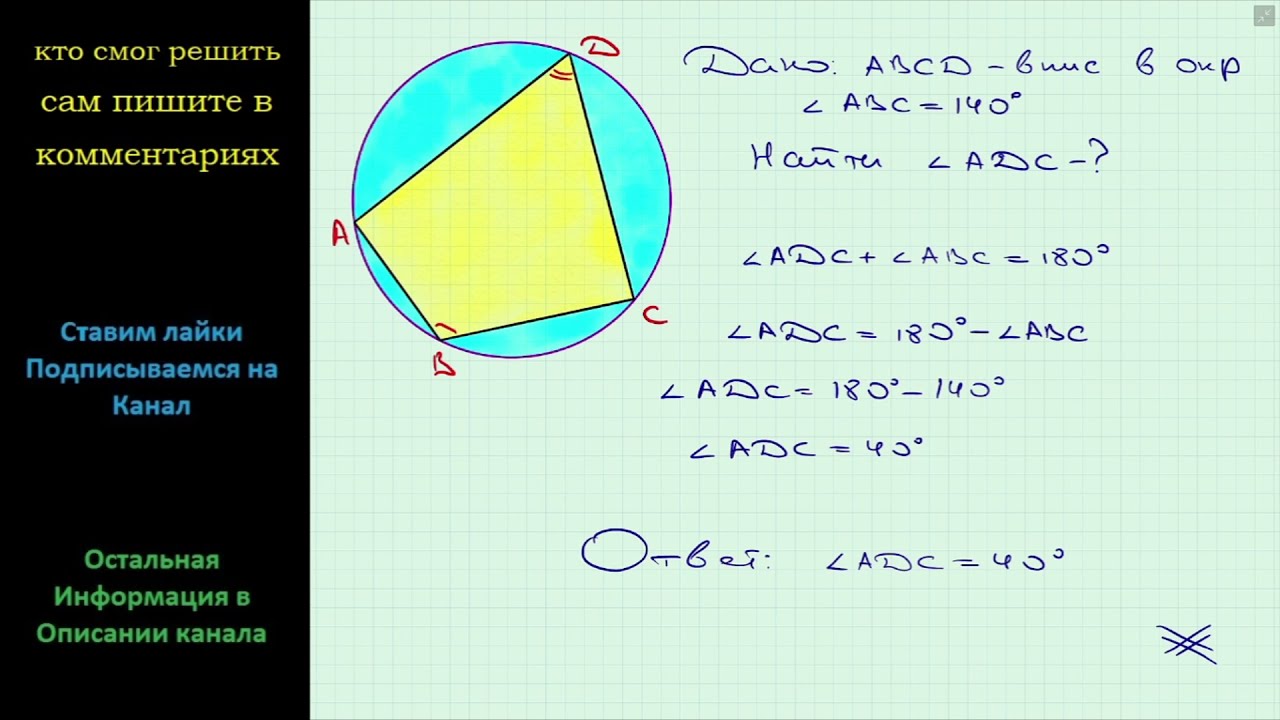 кто смог решить
сам пишите в
комментариях
Ставим лайки
Подписываемся на
Канал
Остальная
Информация в
Описании канала
D
A
C
B
Дано: ABCD – впис в окр
∠ ABC = 140°
Найти ∠ ADC – ?
∠ADC + ∠ABC = 180°
∠ADC = 180° – ∠ABC
∠ADC = 180° – 140°
∠ADC = 40°
Ответ: ∠ADC = 40°